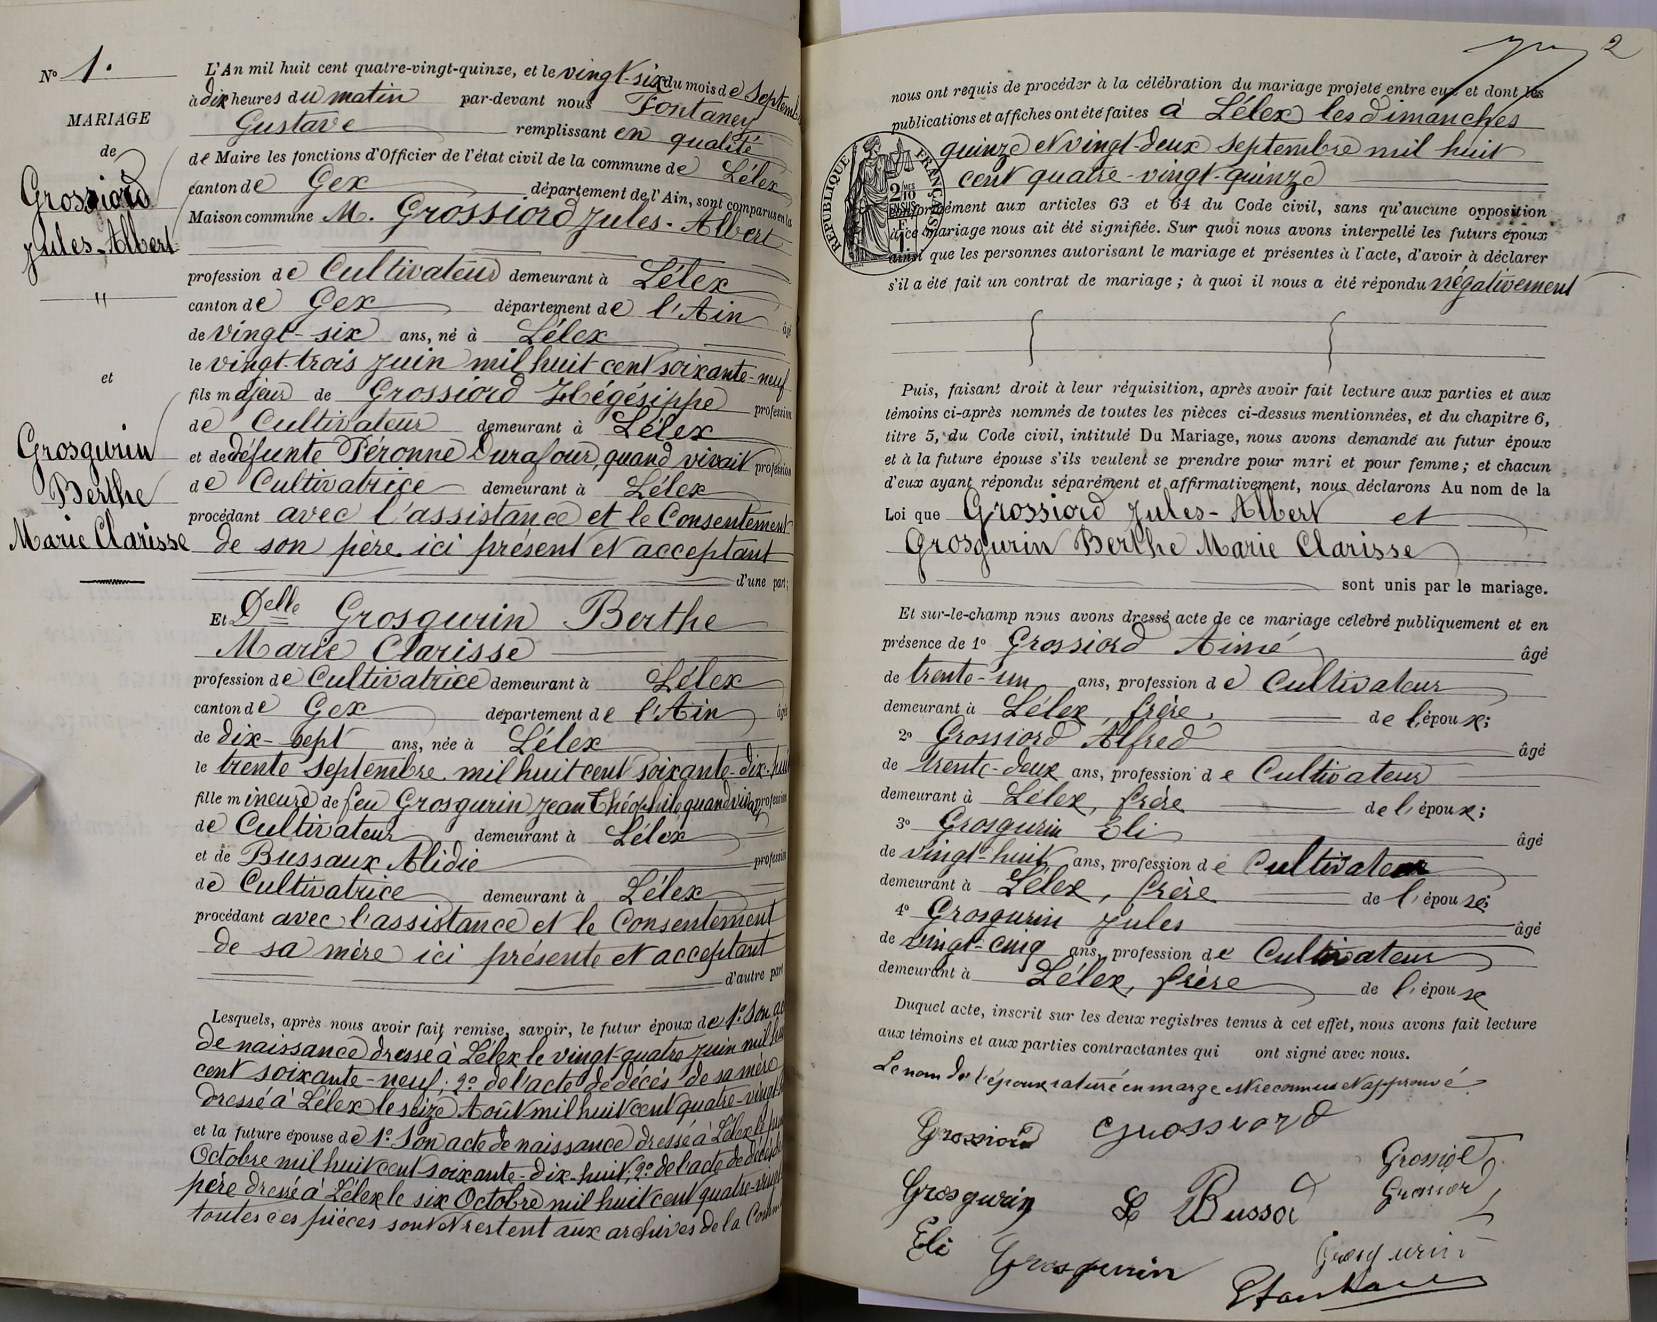 N° 1.
MARIAGE
de
Grossiord
Jules-Albert
"
et
Grosgurin
Berthe
Marie Clarisse
L'An mil huit cent quatre-vingt-quinze, et le vingt-six du mois de Septemb
à dix heures du matin par-devant nous Fontaney
Gustave remplissant en qualité
de Maire les fonctions d'Officier de l'état civil de la commune de Lélex
canton de Gex département de l'Ain, sont comparus en la
Maison commune M. Grossiord Jules-Albert
profession de Cultivateur demeurant à Lélex
canton de Gex département de l'Ain âgé
de vingt-six ans, né à Lélex
le vingt-trois juin mil huit cent soixante-neuf
fils majeur de Grossiord Hégésippe profession
de Cultivateur demeurant à Lélex
et de défunte Péronne Durafour, quand vivait profession
de Cultivatrice demeurant à Lélex
procédant avec l'assistance et le Consentement
de son père ici présent et acceptant
d'une part;
Et Delle Grosgurin Berthe
Marie Clarisse
profession de Cultivatrice demeurant à Lélex
canton de Gex département de l'Ain âgée
de dix-sept ans, née à Lélex
le trente Septembre mil huit cent soixante-dix-huit
fille mineure de feu Grosgurin Jean Théophile quand vivait profession
de Cultivateur demeurant à Lélex
et de Bussaux Alidie profession
de Cultivatrice demeurant à Lélex
procédant avec l'assistance et le Consentement
de sa mère ici présente et acceptant
d'autre part
Lesquels, après nous avoir fait remise, savoir, le futur époux de 1° Son ac
de naissance dressé à Lélex le vingt-quatre juin mil huit
cent soixante-neuf; 2° de l'acte de décès de sa mère
dressé à Lélex le seize Août mil huit cent quatre-vingt
et la future épouse de 1° Son acte de naissance dressé à Lélex le
Octobre mil huit cent soixante-dix-huit, 2° de l'acte de décès de
père dressé à Lélex le six Octobre mil huit cent quatre-vingt
toutes ces pièces sont et restent aux archives de la Comm
2
nous ont requis de procéder à la célébration du mariage projeté entre eux et dont les
publications et affiches ont été faites à Lélex les dimanches
quinze et vingt-deux septembre mil huit
cent quatre-vingt-quinze
RÉPUBLIQUE FRANÇAISE
2 MES 10 EN SUS
1 F.
conformément aux articles 63 et 64 du Code civil, sans qu'aucune opposition
à ce mariage nous ait été signifiée. Sur quoi nous avons interpellé les futurs époux
ainsi que les personnes autorisant le mariage et présentes à l'acte, d'avoir à déclarer
s'il a été fait un contrat de mariage; à quoi il nous a été répondu négativement
Puis, faisant droit à leur réquisition, après avoir fait lecture aux parties et aux
témoins ci-après nommés de toutes les pièces ci-dessus mentionnées, et du chapitre 6,
titre 5, du Code civil, intitulé Du Mariage, nous avons demandé au futur époux
et à la future épouse s'ils veulent se prendre pour mari et pour femme; et chacun
d'eux ayant répondu séparément et affirmativement, nous déclarons Au nom de la
Loi que Grossiord Jules-Albert et
Grosgurin Berthe Marie Clarisse
sont unis par le mariage.
Et sur-le-champ nous avons dressé acte de ce mariage célébré publiquement et en
présence de 1° Grossiord Aimé âgé
de trente-un ans, profession de Cultivateur
demeurant à Lélex, frère de l'époux;
2° Grossiord Alfred âgé
de trente-deux ans, profession de Cultivateur
demeurant à Lélex, frère de l'époux;
3° Grosgurin Eli âgé
de vingt-huit ans, profession de Cultivateur
demeurant à Lélex, frère de l'épouse;
4° Grosgurin Jules âgé
de vingt-cinq ans, profession de Cultivateur
demeurant à Lélex, frère de l'épouse
Duquel acte, inscrit sur les deux registres tenus à cet effet, nous avons fait lecture
aux témoins et aux parties contractantes qui ont signé avec nous.
Le nom de l'époux raturé en marge est reconnu et approuvé
Grossiord Grossiord
Grossiord
Grosgurin Bussod Grossiord
Eli Grosgurin Grosgurin